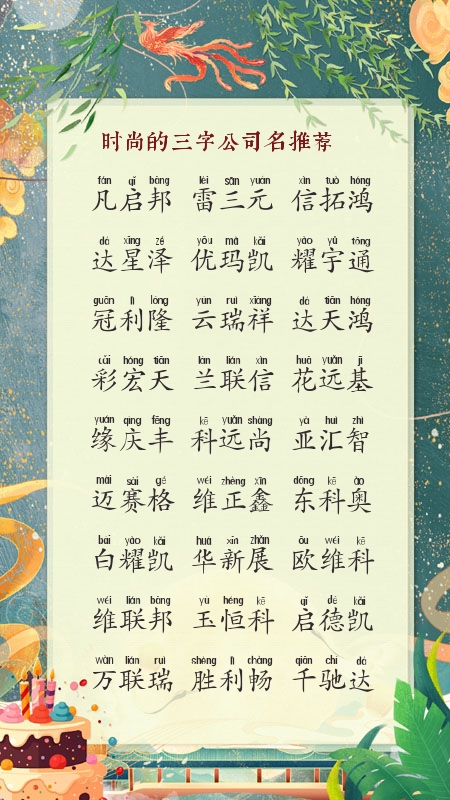 时尚的三字公司名推荐
fán qǐ bāng léi sān yuán xìn tuò hóng
凡启邦 雷三元 信拓鸿
dá xīng zé yōu mǎ kǎi yào yǔ tōng
达星泽 优玛凯 耀宇通
guān lì lóng yún ruì xiáng dá tiān hóng
冠利隆 云瑞祥 达天鸿
cǎi hóng tiān lán lián xìn huā yuǎn jī
彩宏天 兰联信 花远基
yuán qìng fēng kē yuǎn shàng yà huì zhì
缘庆丰 科远尚 亚汇智
mài sài gé wéi zhèng xīn dōng kē ào
迈赛格 维正鑫 东科奥
bái yào kǎi huá xīn zhǎn ōu wéi kē
白耀凯 华新展 欧维科
wéi lián bāng yù héng kē qǐ dé kǎi
维联邦 玉恒科 启德凯
wàn lián ruì shèng lì chàng qiān chí dá
万联瑞 胜利畅 千驰达